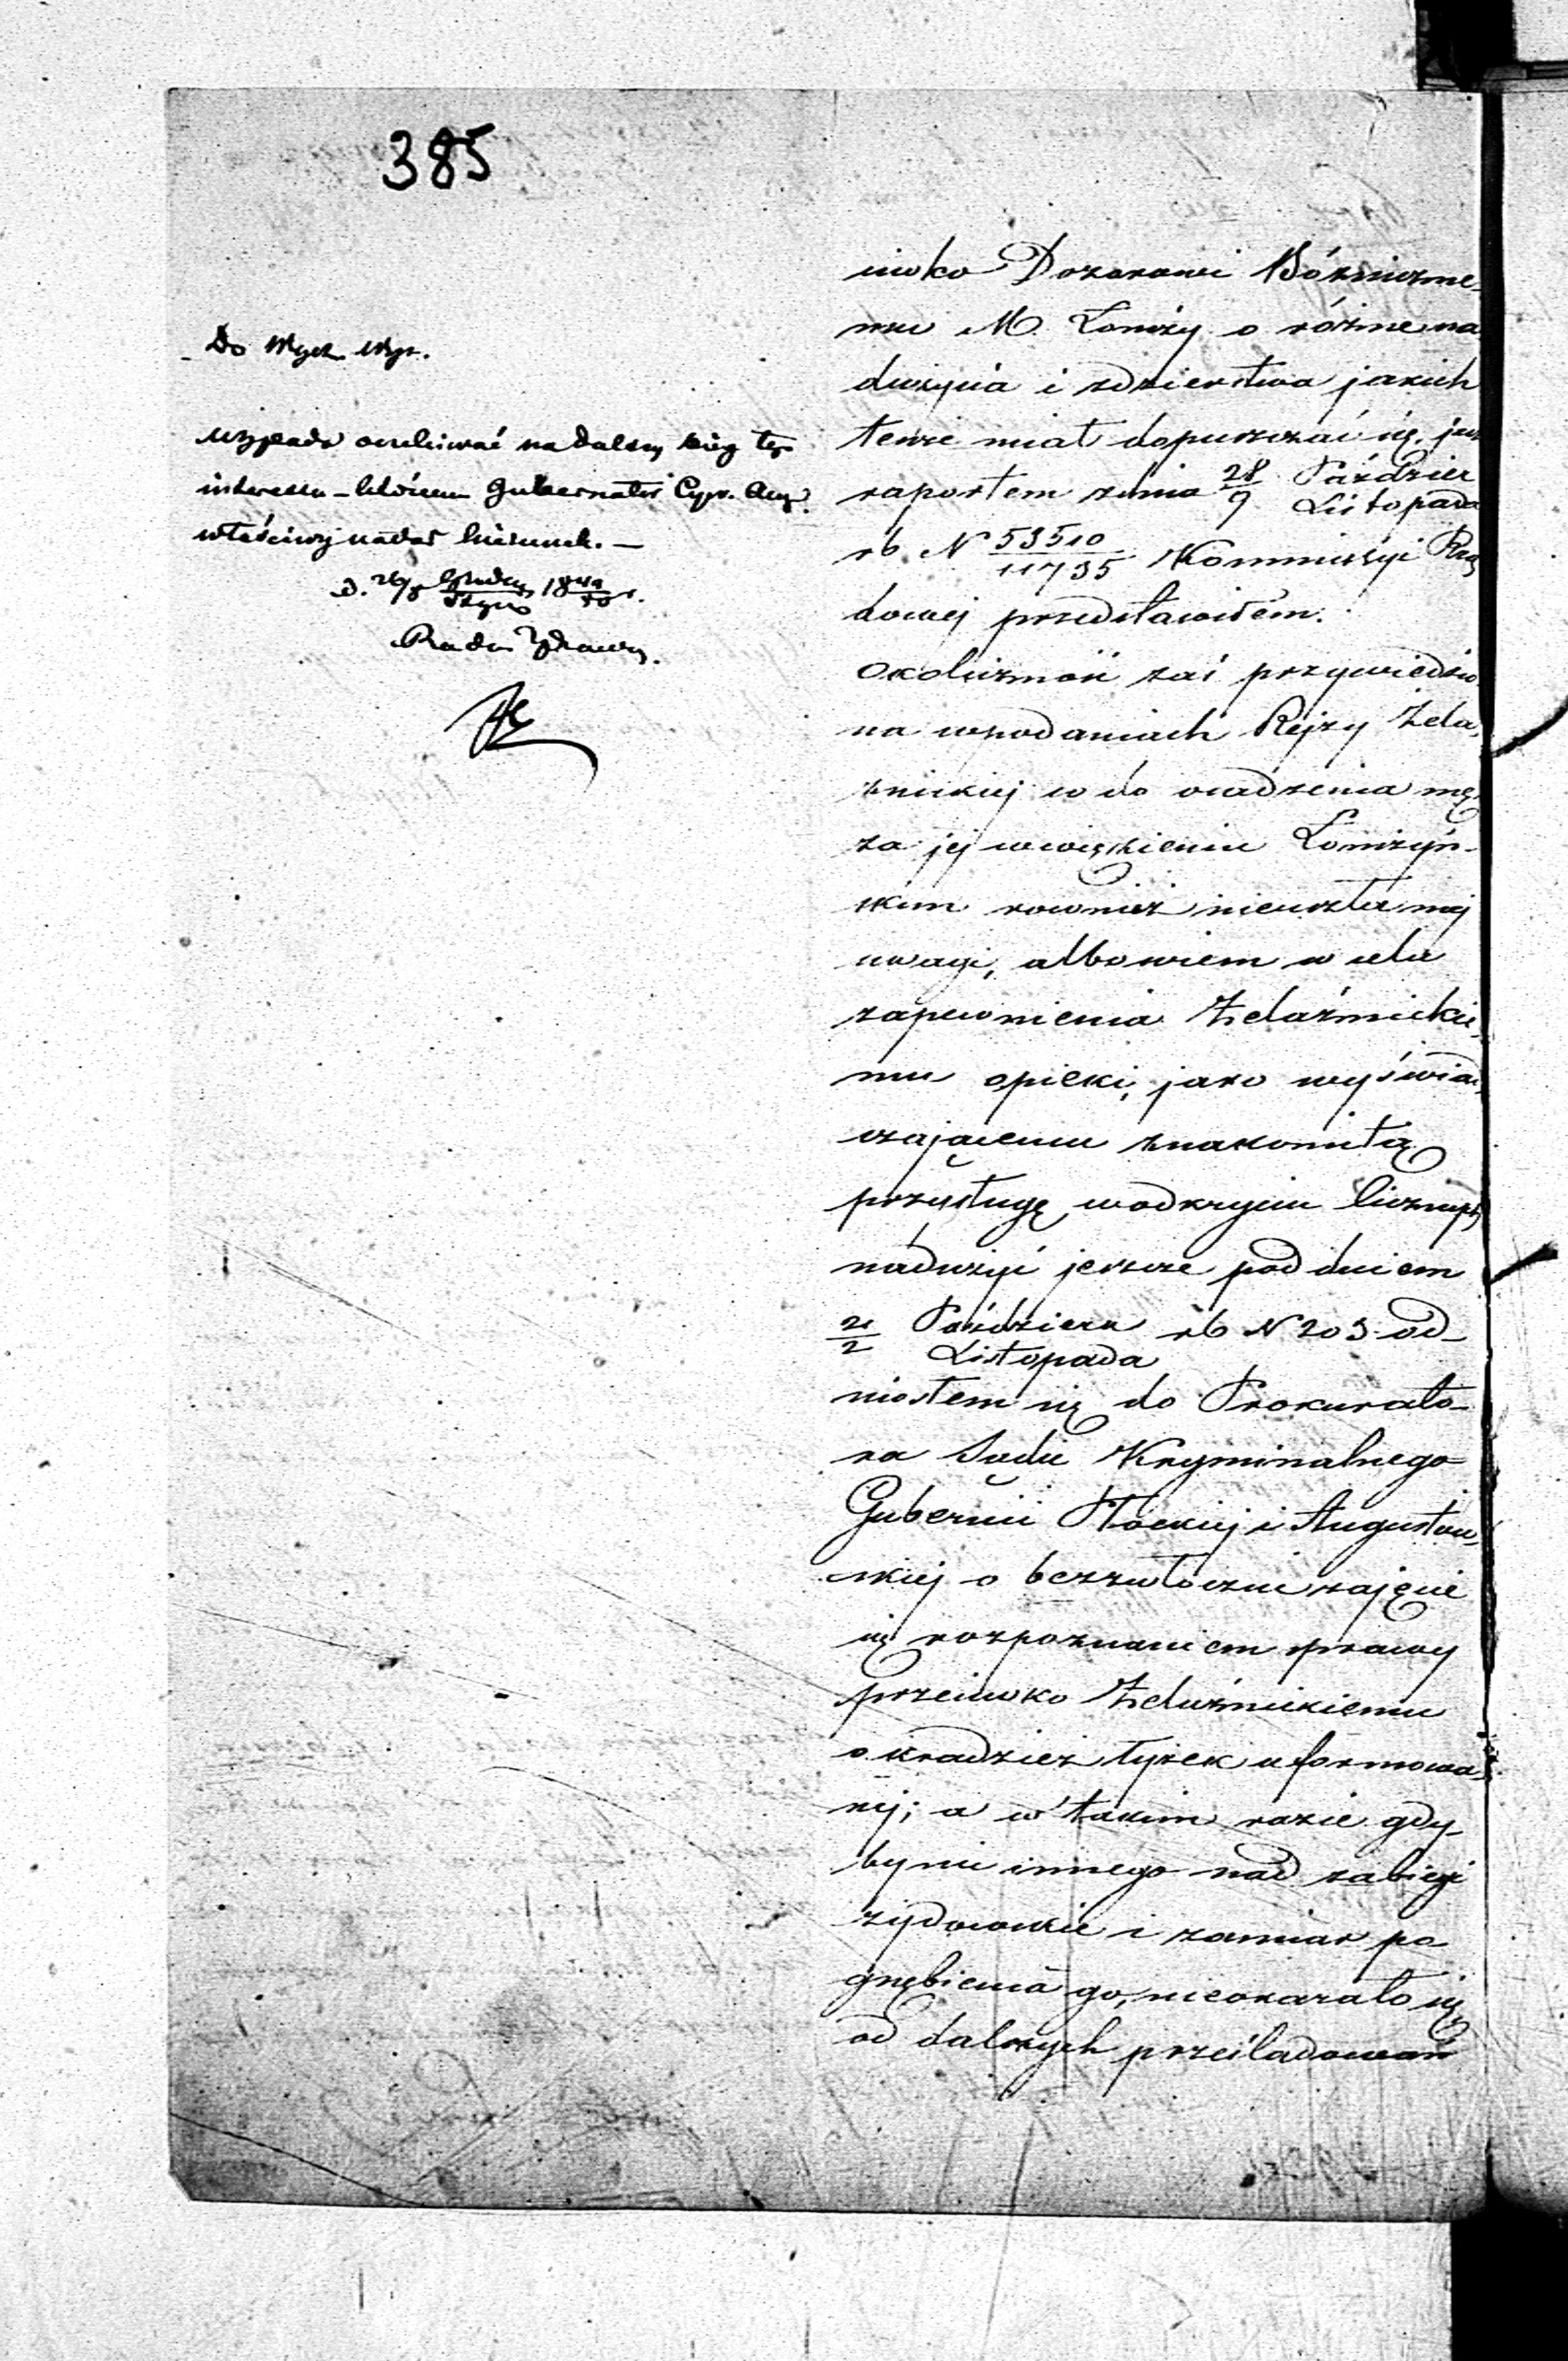 385
Do Wydz. Wyz.
wypada oczekiwać na dalszy bieg tego
interessu – któremu Gubernator Cyw. Aug.
właściwy nadał kierunek. —
Rada
ciwko Dozorowi Bóżniczne-
mu M. Łomży o różne na
dużycia i zdzierstwa jakich
tenże miał dopuszczać się, już
raportem z dnia 28/9 Paździer/Listopada
rb N 53510/11735 Kommissyi Rzą
dowej przedstawiłem.
Okoliczność zaś przywiedzio
na w podaniach Rejzy Żela,
źnickiej co do osadzenia mę
ża jej w więzieniu Łomżyń-
skim również nieuszła mej
uwagi, albowiem w celu
zapewnienia Żelaźnickie,
mu opieki, jako wyświad,
czającemu znakomitą
przysługę w odkryciu licznych
nadużyć jeszcze pod dniem
21/2 Październ/Listopada rb N 203 od-
niosłem się do Prokurato-
ra Sądu Kryminalnego
Gubernii Płockiej i Augustow,
skiej o bezzwłoczne zajęcie
się rozpoznaniem sprawy
przeciwko Żelaźnickiemu
o kradzież łyżek uformowa
nej; a w takim razie gdy-
by nic innego nad zabiegi
żydowskie i zamiar po
gnębienia go, nieokazało się
od dalszych prześladowań